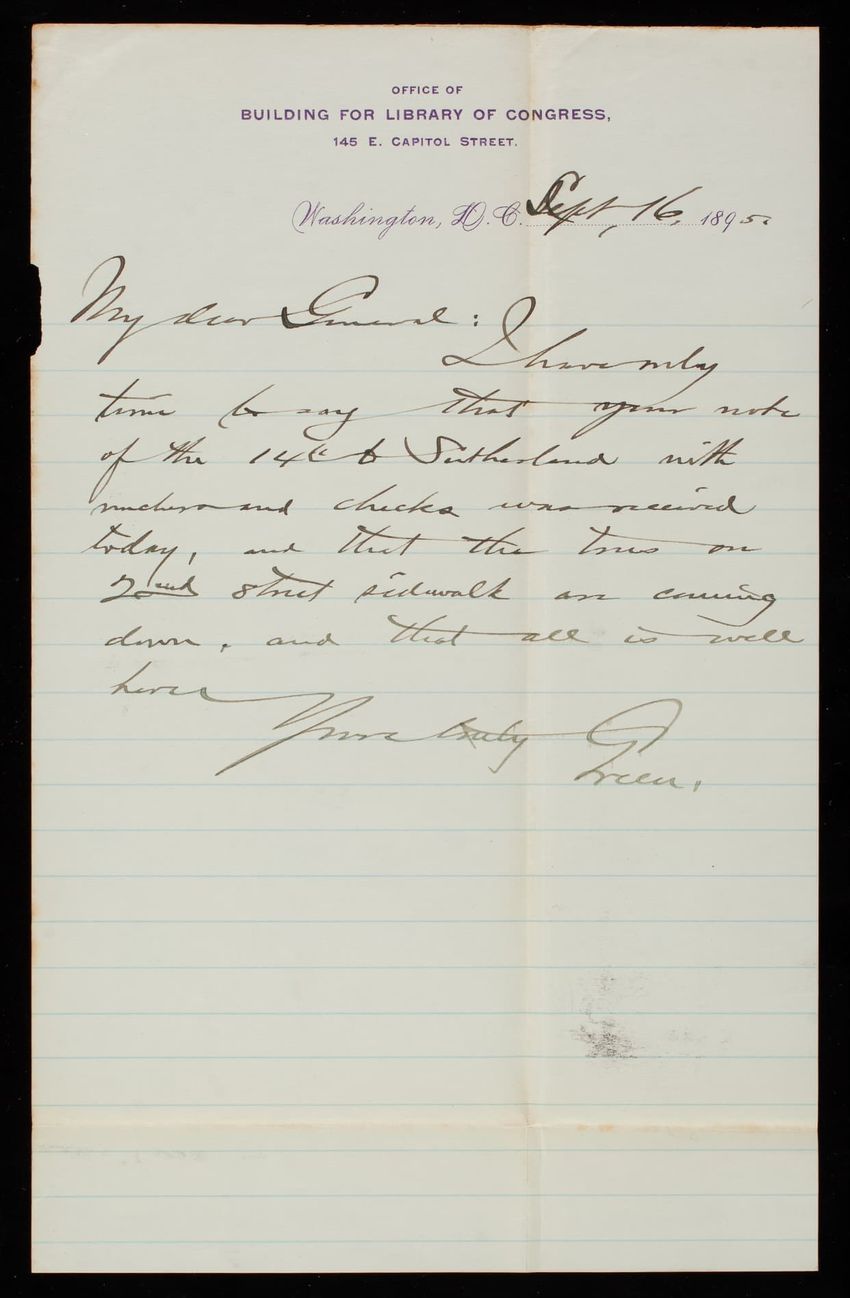 OFFICE OF
BUILDING FOR LIBRARY OF CONGRESS,
145 E. CAPITOL STREET.
Washington, D.C. Sept, 16, 1895.
My dear General:
I have only
time to say that your note
of the 14th to Sutherland with
vouchers and checks was received
today, and that the trees on
2nd street sidewalk are coming
down, and that all is well
here
Yours truly
Green.